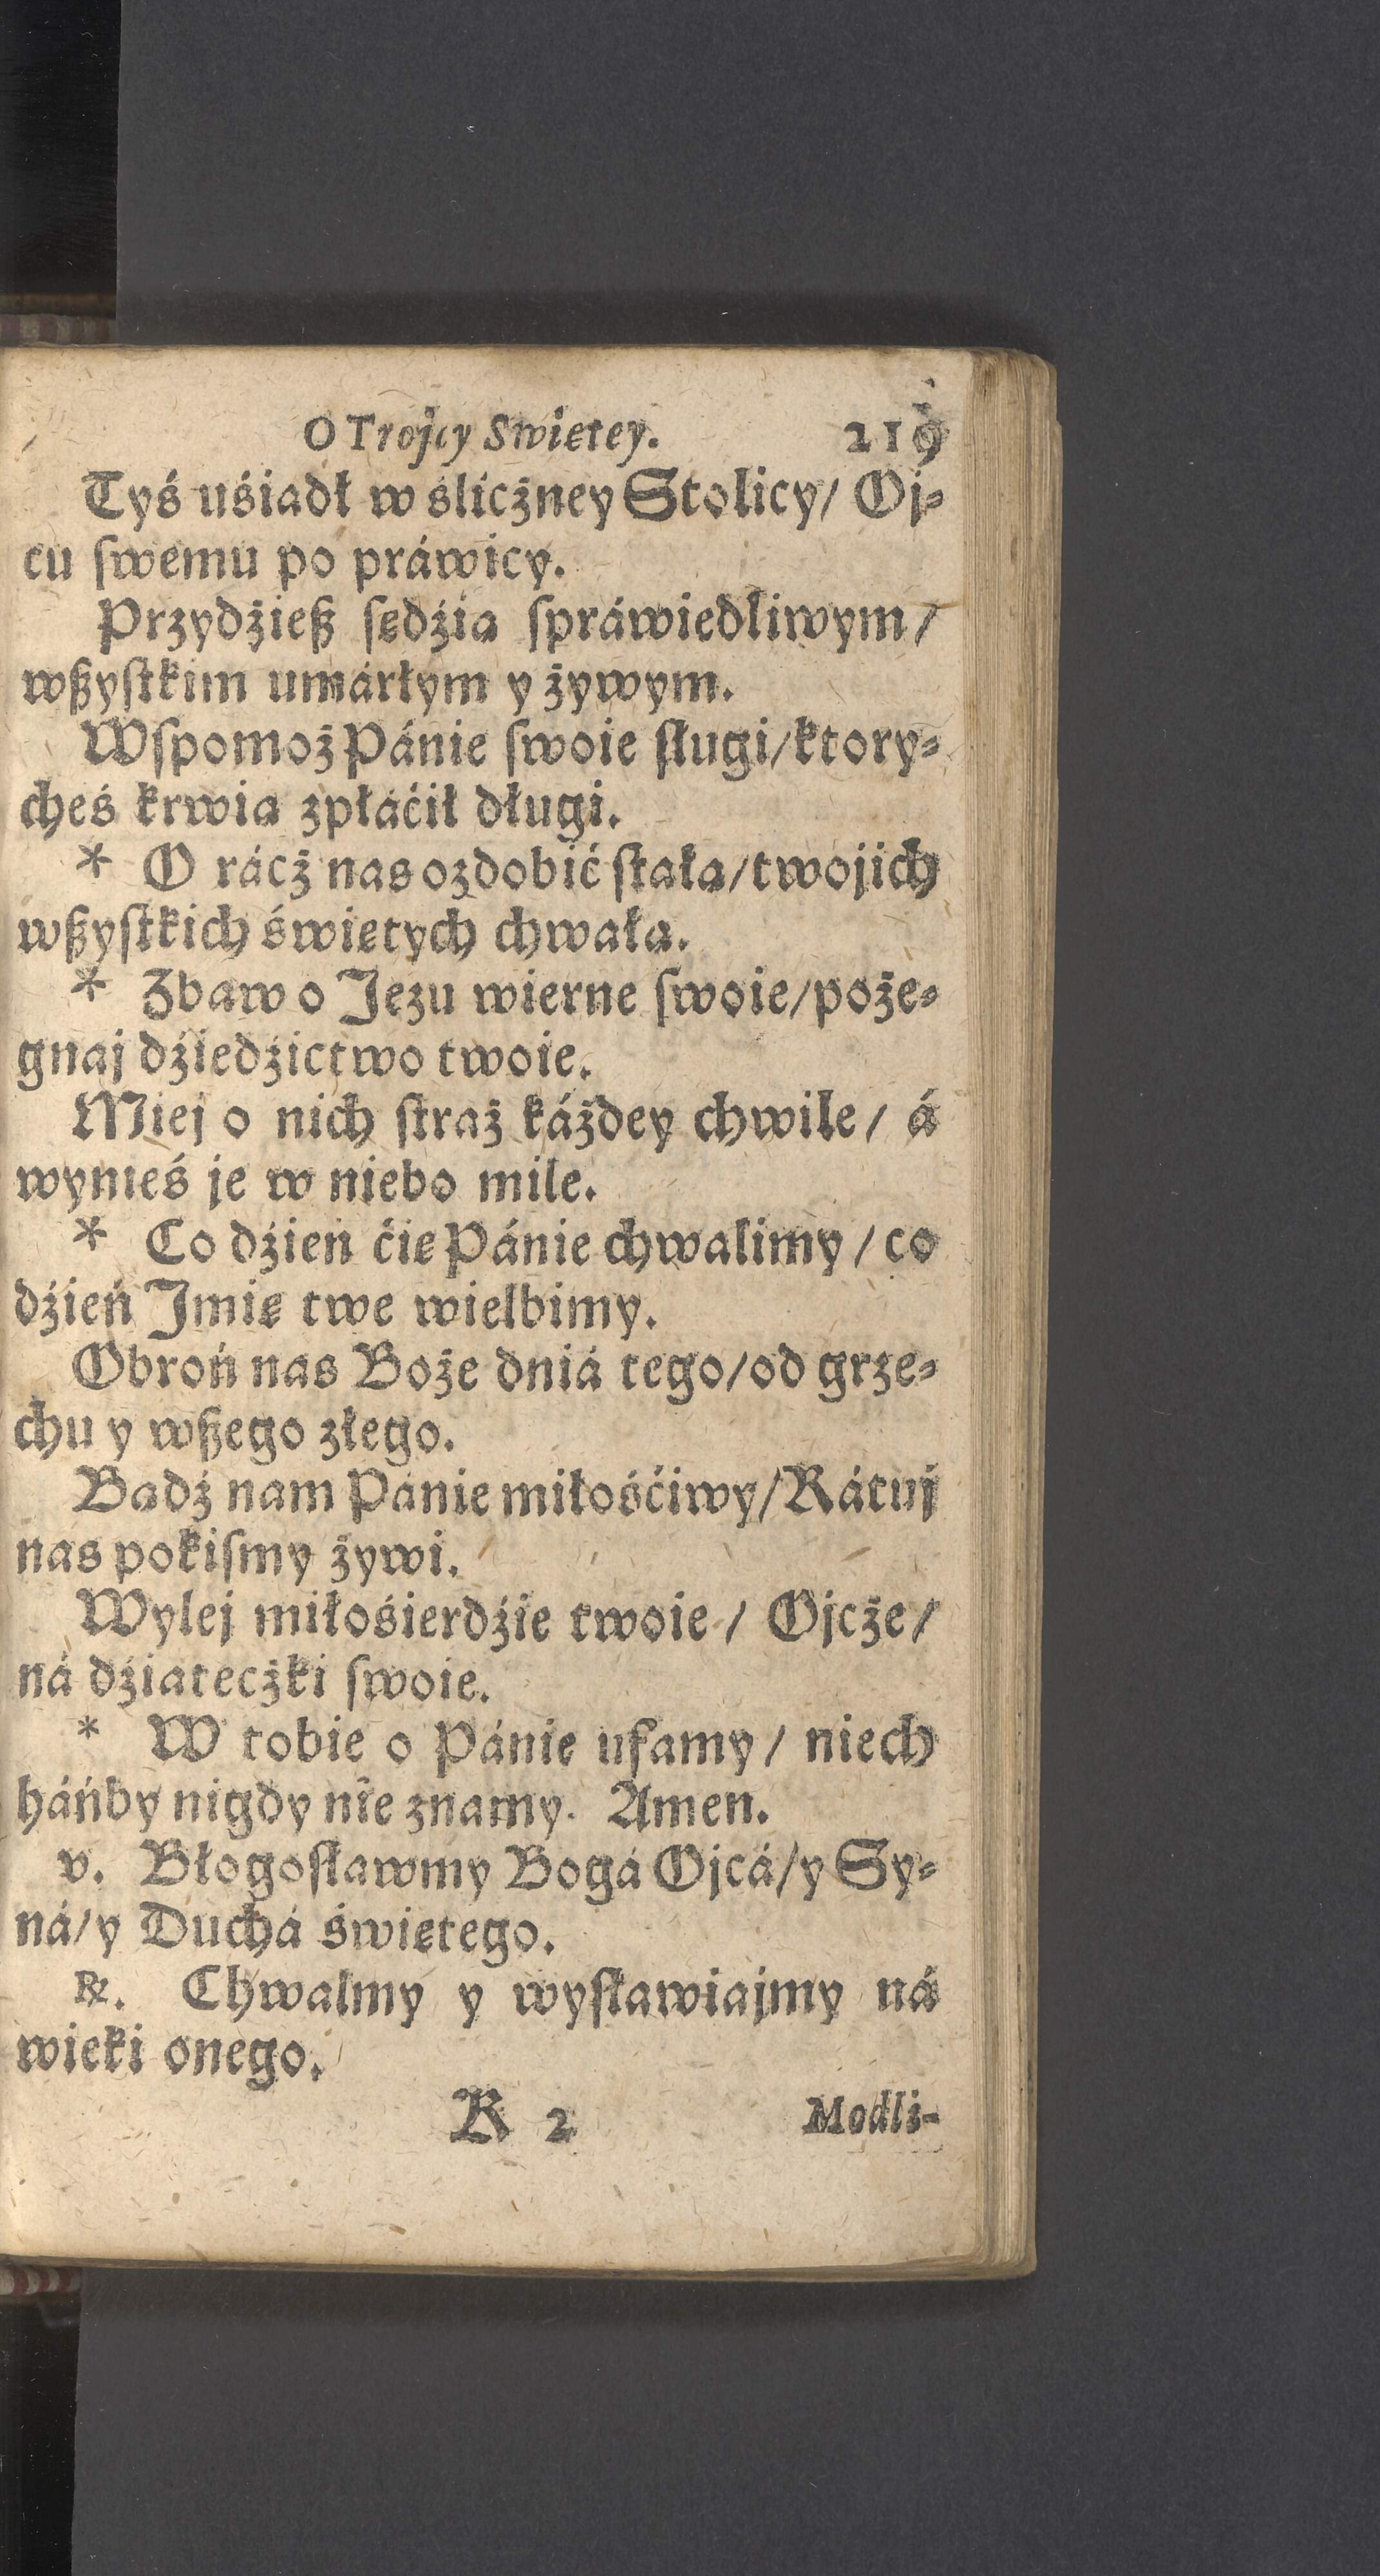 O Trojcy Swiętey. 219
Tyś uśiadł w sliczney Stolicy/ Oj⸗
cu ſwemu po práwicy.
Przydźieß ſędźia ſpráwiedliwym/
wßyſtkim umárłym y żywym.
Wſpomoż Pánie ſwoie ſługi/ktory⸗
cheś krwia zpłáćił długi.
* O rácż nas ozdobić ſtała/twojich
wßyſtkich świętych chwała.
* Zbaw o Jezu wierne ſwoie/poże⸗
gnaj dźiedźictwo twoie.
Miej o nich ſtraż káżdey chwile/ á
wynieś je w niebo mile.
* Co dźien ćię Pánie chwalimy/co
dźień Jmię twe wielbimy.
Obroń nas Boże dniá tego/od grze⸗
chu y wßego złego.
Badź nam Pánie miłośćiwy/Rátuj
nas pokiſmy żywi.
Wylej miłośierdźie twoie/ Ojcże/
ná dźiatecżki ſwoie.
* W tobie o Pánie ufamy/ niech
háńby nigdy nie znamy. Amen.
v. Błogoſławmy Bogá Ojcá/y Sy⸗
ná/y Duchá świętego.
℞. Chwalmy y wyſławiajmy ná
wieki onego.
R 2 Modli-